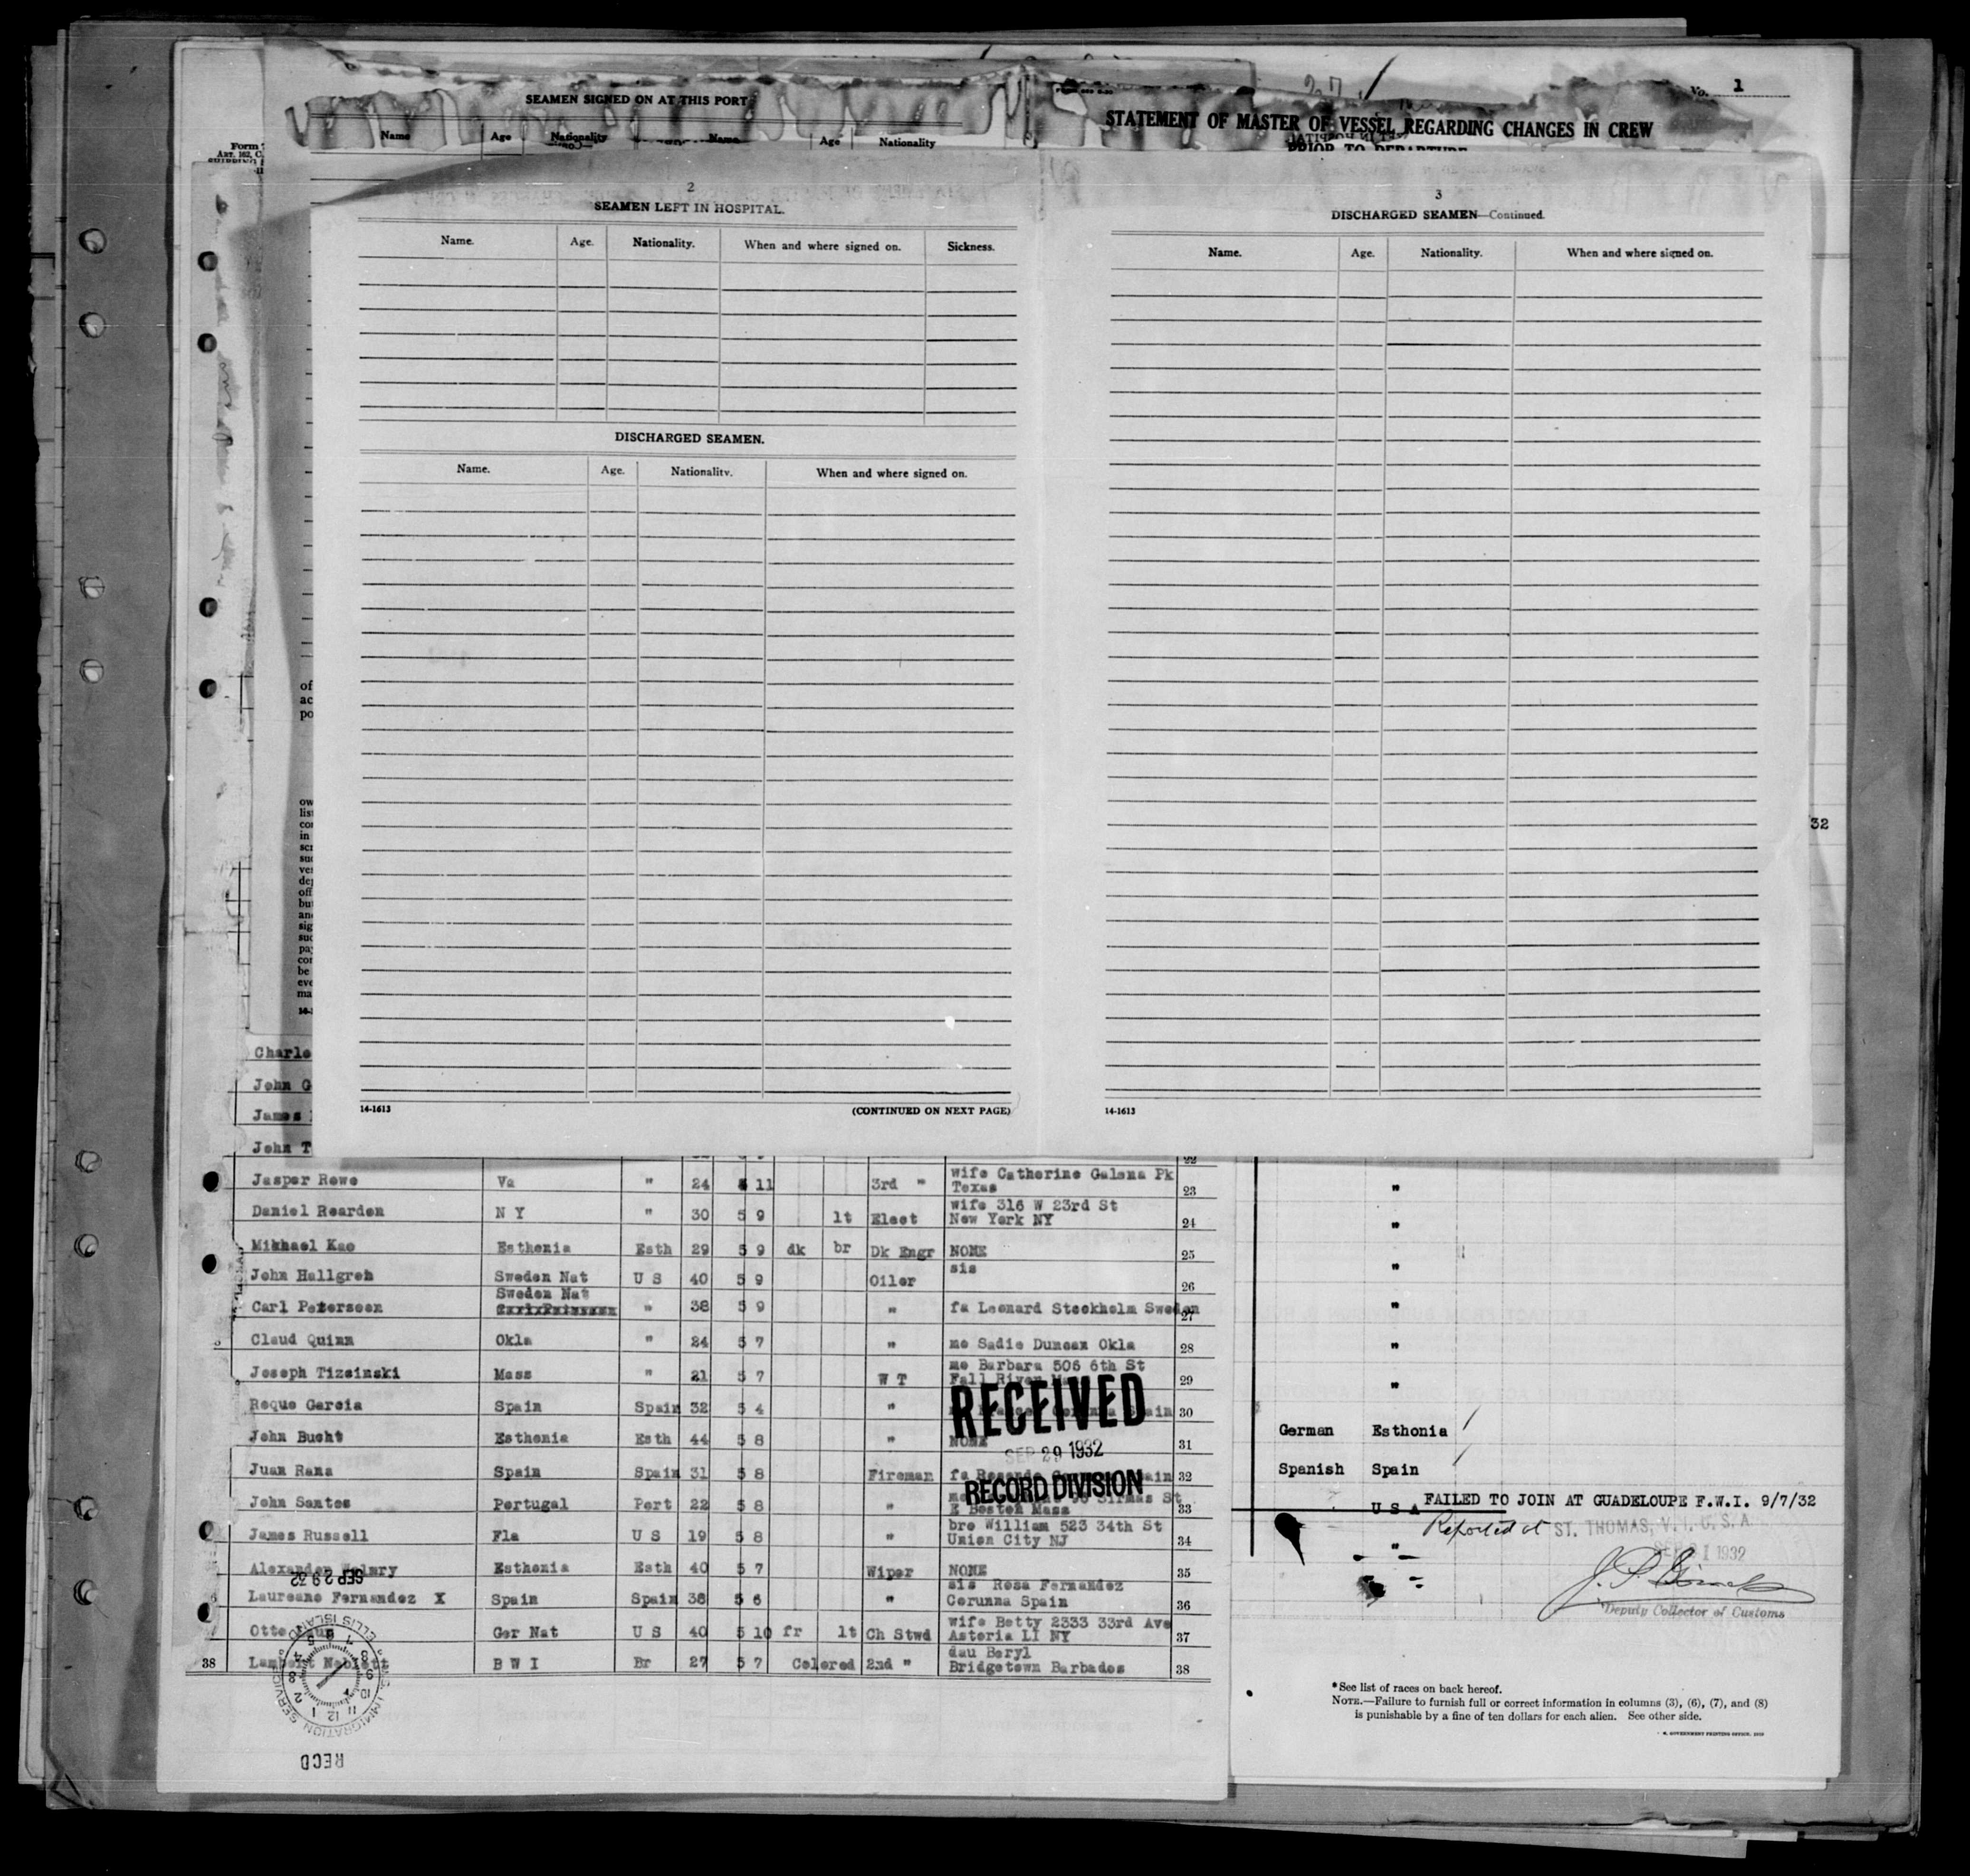 SEAMEN SIGNED ON AT THIS PORT
Name Age Nationality Name Age Nationality
No. 1
STATEMENT OF MASTER OF VESSEL REGARDING CHANGES IN CREW
PRIOR TO DEPARTURE
Form
2
SEAMEN LEFT IN HOSPITAL.
Name. Age. Nationality. When and where signed on. Sickness.
DISCHARGED SEAMEN.
Name. Age. Nationality. When and where signed on.
14-1613 (CONTINUED ON NEXT PAGE)
3
DISCHARGED SEAMEN—Continued.
Name. Age. Nationality. When and where signed on.
14-1613
32
of
ac
po
ow
list
con
in
scr
suc
ves
dep
off
but
and
sig
suc
pay
con
be
eve
ma
Charle
John G
James
John T
Jasper Rowe Va " 24 11 3rd " wife Catherine Galena Pk Texas 23
Daniel Rearden N Y " 30 5 9 lt Elect wife 316 W 23rd St New York NY 24
Mikhael Kao Esthonia Esth 29 5 9 dk br Dk Engr NONE 25
John Hallgren Sweden Nat U S 40 5 9 Oiler sis 26
Carl Peterseen Sweden Nat " 38 5 9 " fa Leonard Stockholm Sweden 27
Claud Quinn Okla " 24 5 7 " mo Sadie Duncan Okla 28
Joseph Tizsinski Mass " 21 5 7 W T mo Barbara 506 6th St Fall River 29
Roque Garcia Spain Spain 32 5 4 " Spain 30
John Bucht Esthonia Esth 44 5 8 " NONE 31
Juan Rama Spain Spain 31 5 8 Fireman fa Spain 32
John Santos Portugal Port 22 5 8 " St E Boston Mass 33
James Russell Fla U S 19 5 8 " bro William 523 34th St Union City NJ 34
Alexander Esthonia Esth 40 5 7 Wiper NONE 35
Laureano Fernandez X Spain Spain 38 5 6 " sis Rosa Fernandez Corunna Spain 36
Otto Ger Nat U S 40 5 10 fr lt Ch Stwd wife Betty 2333 33rd Ave Astoria LI NY 37
38 Lambert B W I Br 27 5 7 Colored 2nd " dau Beryl Bridgetown Barbados 38
RECEIVED
SEP 29 1932
RECORD DIVISION
SEP 29 32
U.S. IMMIGRATION SERVICE
ELLIS ISLAND
RECD
"
"
"
"
"
"
German Esthonia
Spanish Spain
U S A FAILED TO JOIN AT GUADELOUPE F.W.I. 9/7/32
Reported at ST. THOMAS, V. I. U. S. A.
"
1932
Deputy Collector of Customs
*See list of races on back hereof.
NOTE.—Failure to furnish full or correct information in columns (3), (6), (7), and (8)
is punishable by a fine of ten dollars for each alien. See other side.
GOVERNMENT PRINTING OFFICE